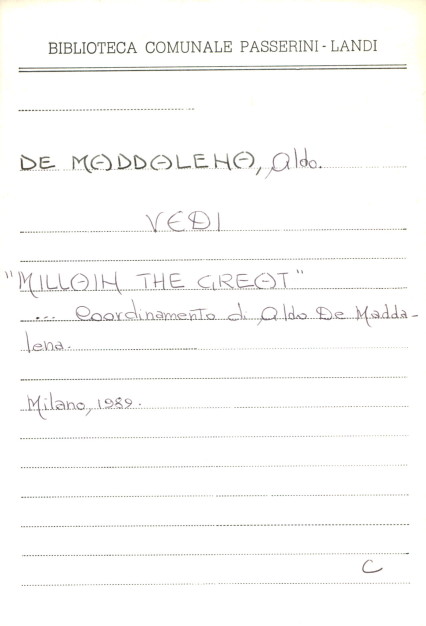 BIBLIOTECA COMUNALE PASSERINI - LANDI
DE MADDALENA, Aldo.
VEDI
"MILLAIN THE GREAT"
... Coordinamento di Aldo De Madda-
lena.
Milano, 1989.
C